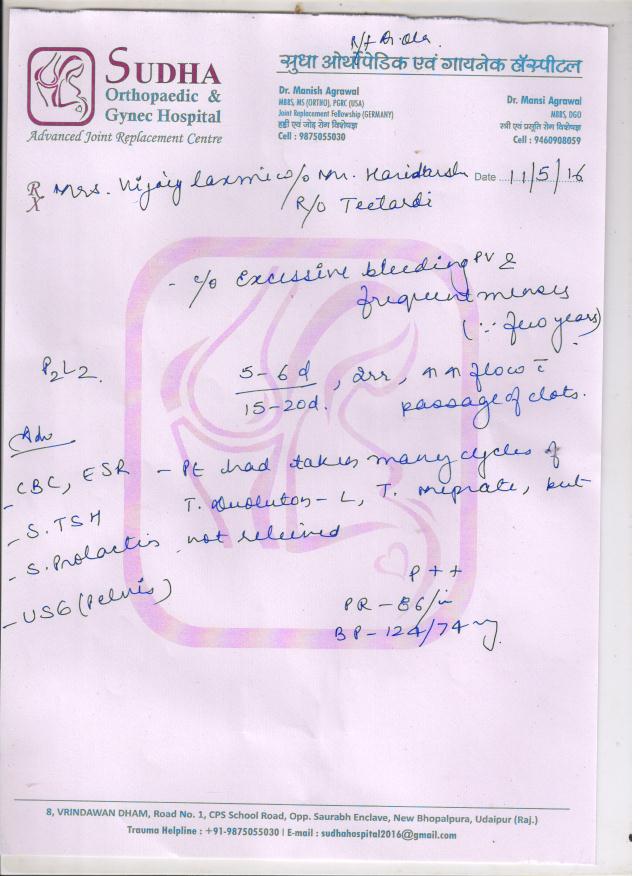 R/f Dr. Ola
SUDHA
Orthopaedic &
Gynec Hospital
Advanced Joint Replacement Centre
सुधा ऑर्थोपेडिक एवं गायनेक हॅास्पीटल
Dr. Manish Agrawal
MBBS, MS (ORTHO), PGRC (USA)
Joint Replacement Fellowship (GERMANY)
हड्डी एवं जोड़ रोग विशेषज्ञ
Cell : 9875055030
Dr. Mansi Agrawal
MBBS, DGO
स्त्री एवं प्रसूति रोग विशेषज्ञ
Cell : 9460908059
Rx Mrs. Vijay laxmi w/o Mr. Date 11/5/16
R/o Teetardi
- c/o Excessive bleeding PV &
frequent menses
(∵ few years)
P2L2. 5-6 d / 15-20d. , ↑↑ flow c̄
passage of clots.
Adv
- CBC, ESR - Pt had taken many cycles of
- S. TSH T. Duoluton-L, T. Meprate, but
- S. Prolactin not relieved
- USG (Pelvis) P + +
PR - 86/m
BP - 124/74
8, VRINDAWAN DHAM, Road No. 1, CPS School Road, Opp. Saurabh Enclave, New Bhopalpura, Udaipur (Raj.)
Trauma Helpline : +91-9875055030 | E-mail : sudhahospital2016@gmail.com